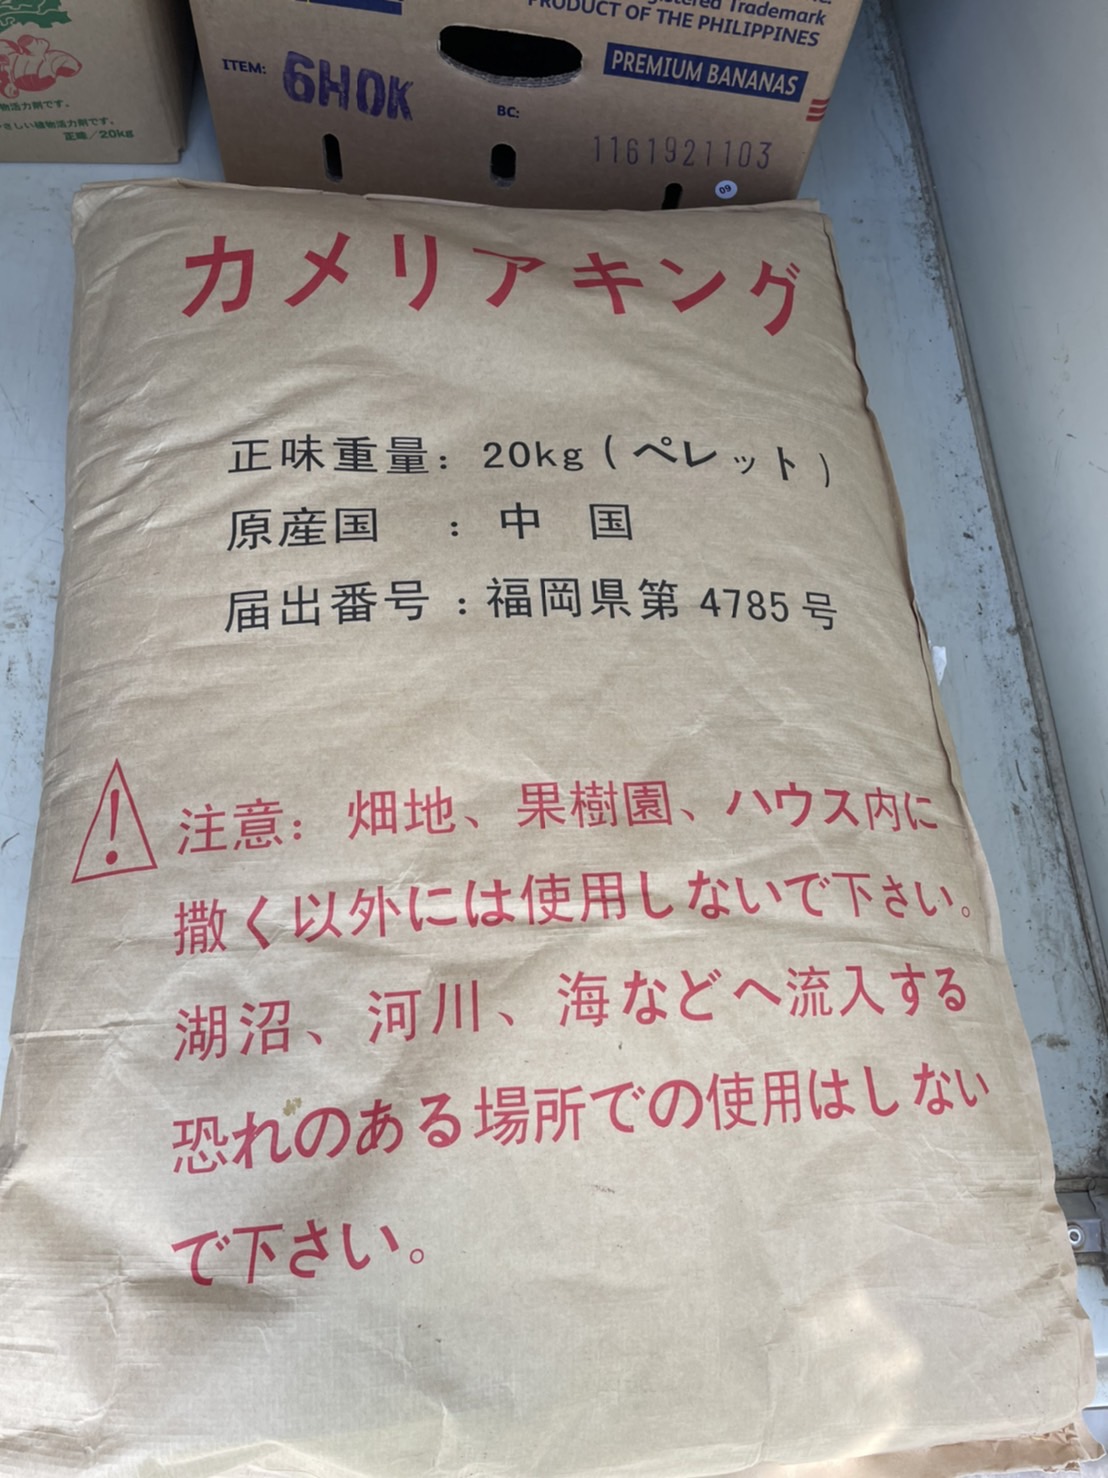 物活力剤です。
さしい植物活力剤です。
正味／20kg
gistered Trademark
PRODUCT OF THE PHILIPPINES
PREMIUM BANANAS
ITEM: 6HOK
BC:
1161921103
09
カメリアキング
正味重量：20kg（ペレット）
原産国　：中　国
届出番号：福岡県第 4785 号
注意：畑地、果樹園、ハウス内に
撒く以外には使用しないで下さい。
湖沼、河川、海などへ流入する
恐れのある場所での使用はしない
で下さい。